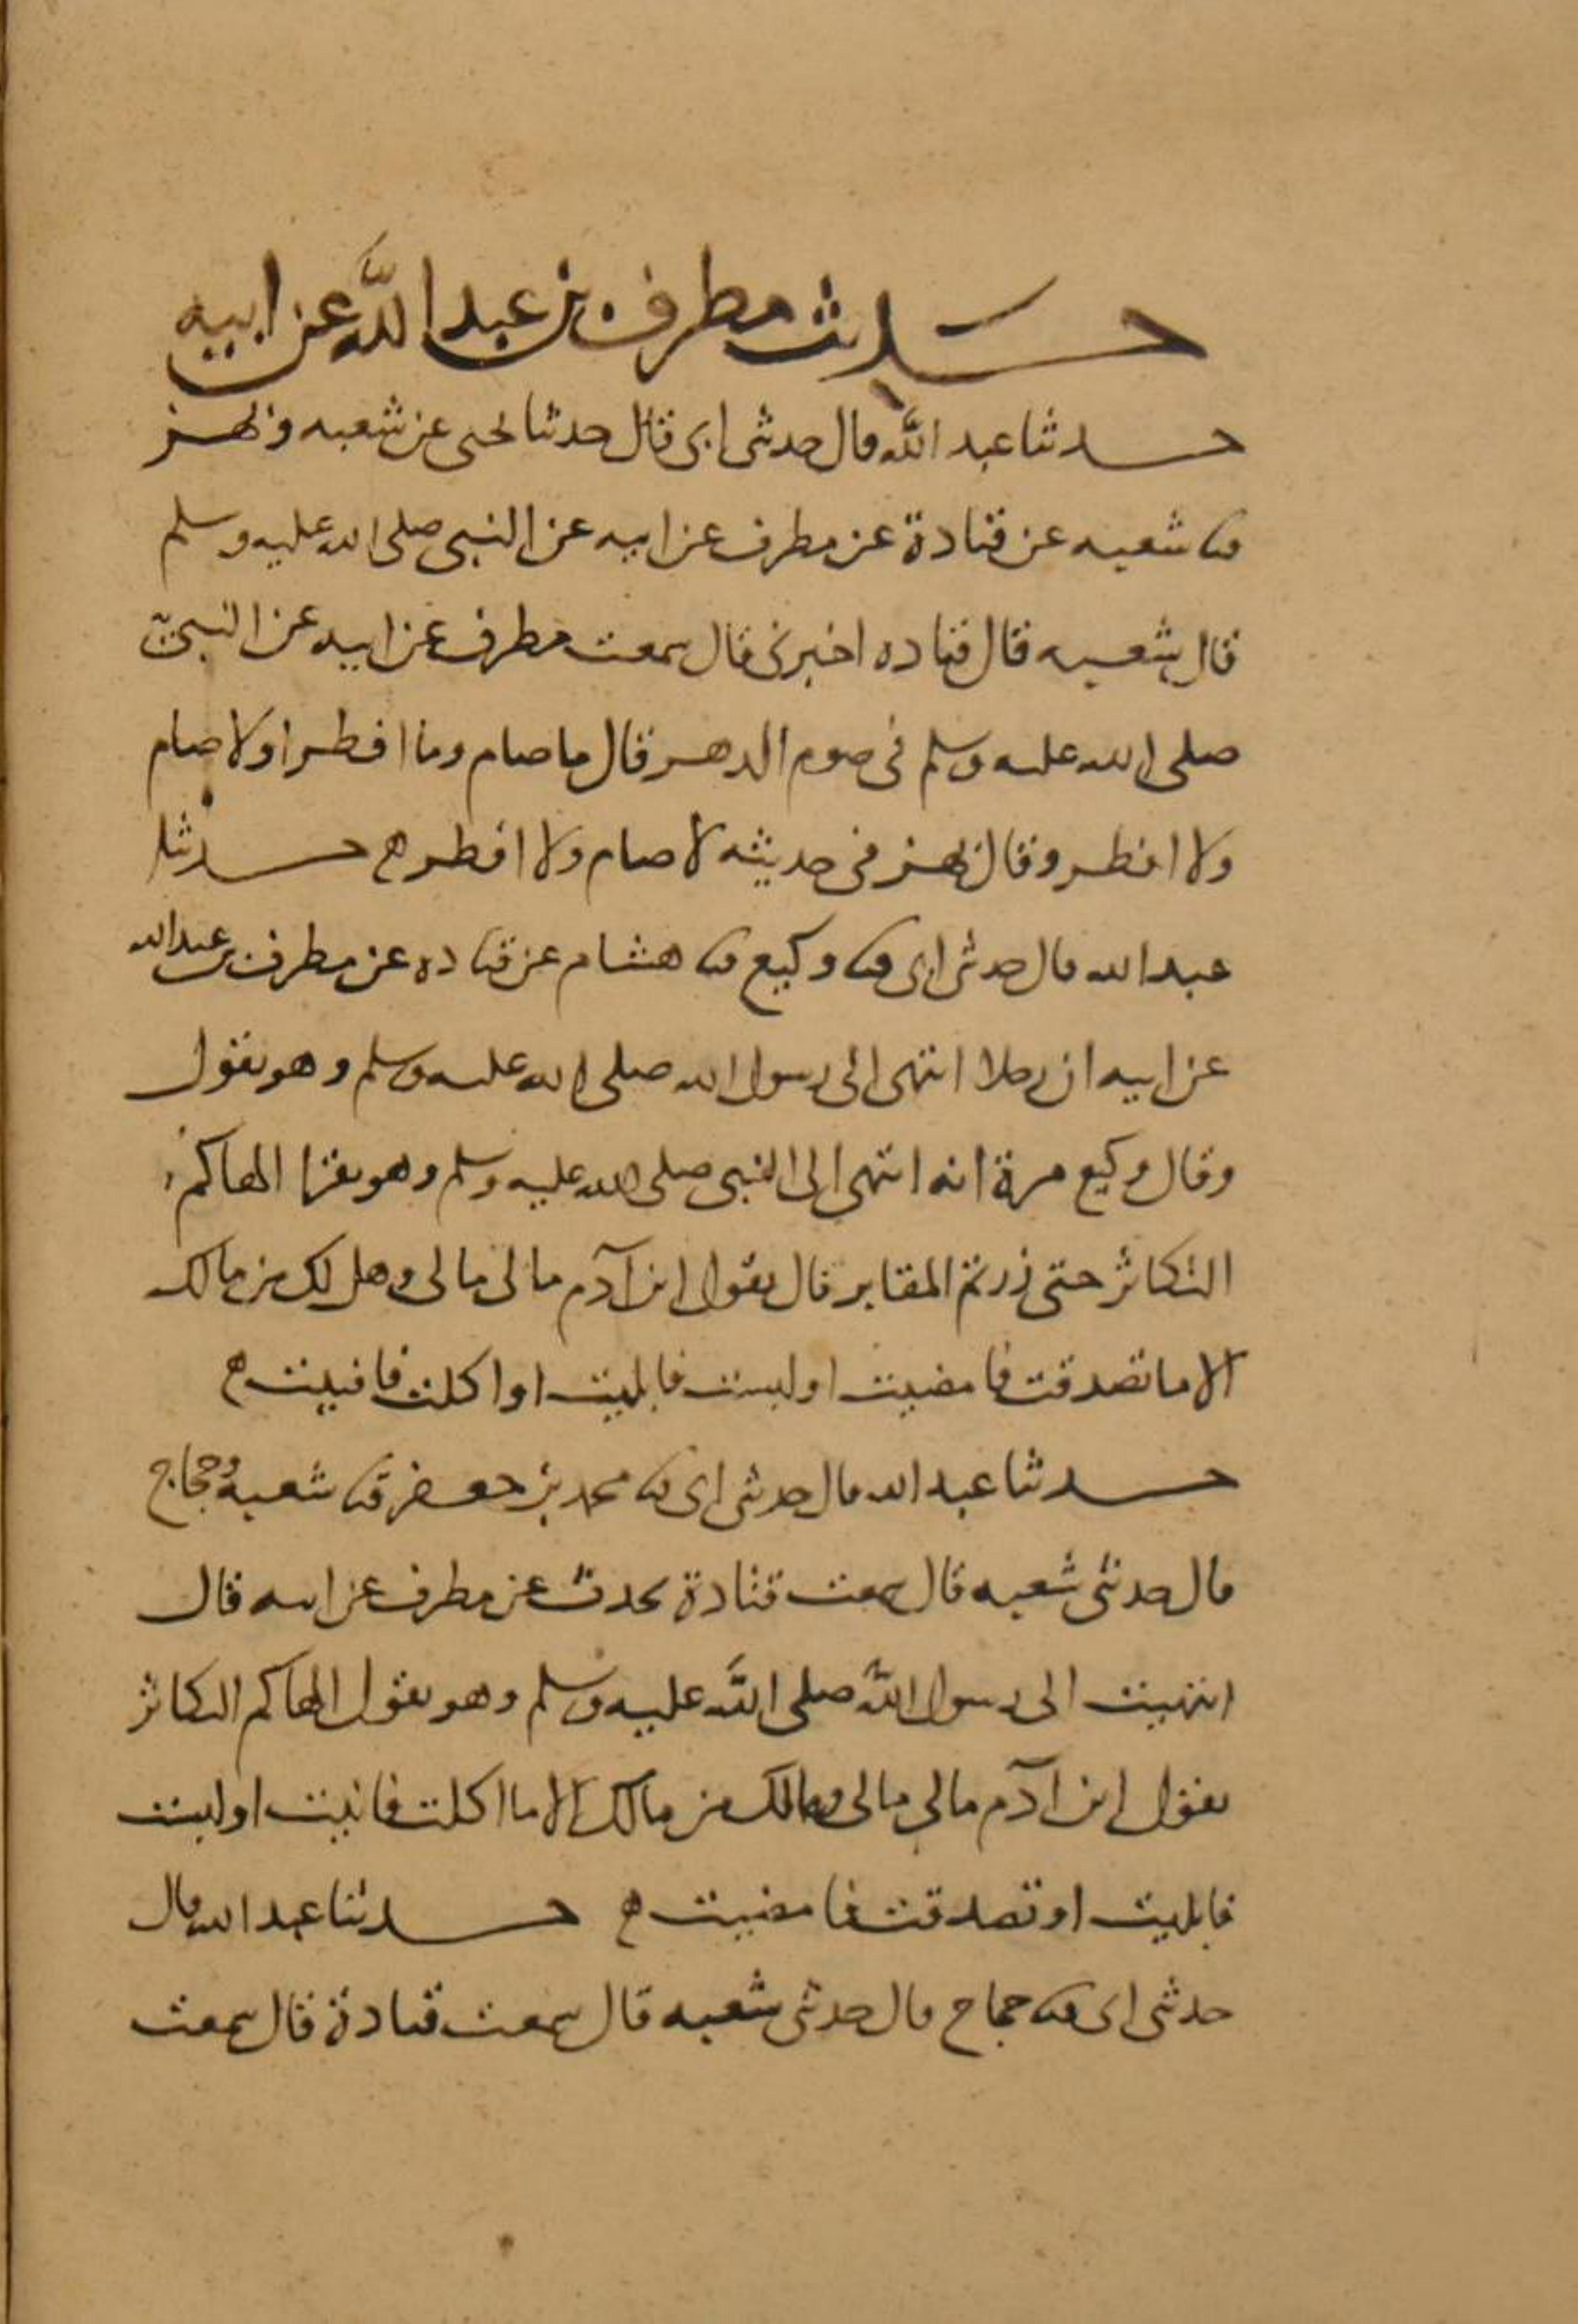 حديث مطرف بن عبد الله عن ابيه
حدثنا عبد الله قال حدثنى ابى قال حدثنا يحيى عن شعبه وبهز
ثنا شعبه عن قتادة عن مطرف عن ابيه عن النبى صلى الله عليه وسلم
قال شعبه قال قتاده اخبرنى قال سمعت مطرف عن ابيه عن النبى
صلى الله عليه وسلم فى صوم الدهر قال ما صام وما افطر او لا صام
ولا افطر وقال بهز فى حديثه لا صام ولا افطر ه حدثنا
عبد الله قال حدثنى ابى ثنا وكيع ثنا هشام عن قتاده عن مطرف بن عبد الله
عن ابيه ان رجلا انتهى الى رسول الله صلى الله عليه وسلم وهو يقول
وقال وكيع مرة انه انتهى الى النبى صلى الله عليه وسلم وهو يقرا الهاكم
التكاثر حتى زرتم المقابر قال يقول ابن آدم مالى مالى وهل لك من مالك
الا ما تصدقت فامضيت او لبست فابليت او اكلت فافنيت ه
حدثنا عبد الله قال حدثنى ابى ثنا محمد بن جعفر ثنا شعبه وحجاج
قال حدثنى شعبه قال سمعت قتادة يحدث عن مطرف عن ابيه قال
انتهيت الى رسول الله صلى الله عليه وسلم وهو يقول الهاكم التكاثر
يقول ابن آدم مالى مالى ومالك من مالك الا ما اكلت فافنيت او لبست
فابليت او تصدقت فامضيت ه حدثنا عبد الله قال
حدثنى ابى ثنا حجاج قال حدثنى شعبه قال سمعت قتادة قال سمعت